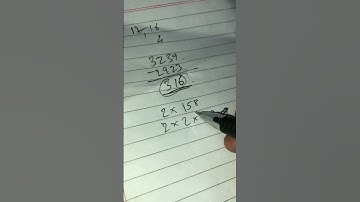 12, 16
4
3239
- 2923
316
2 × 158
2 × 2 ×